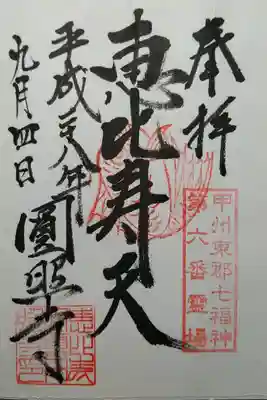 奉拝
甲州東郡七福神
第六番霊場
恵比寿天
平成二十八年
九月四日
圓照寺